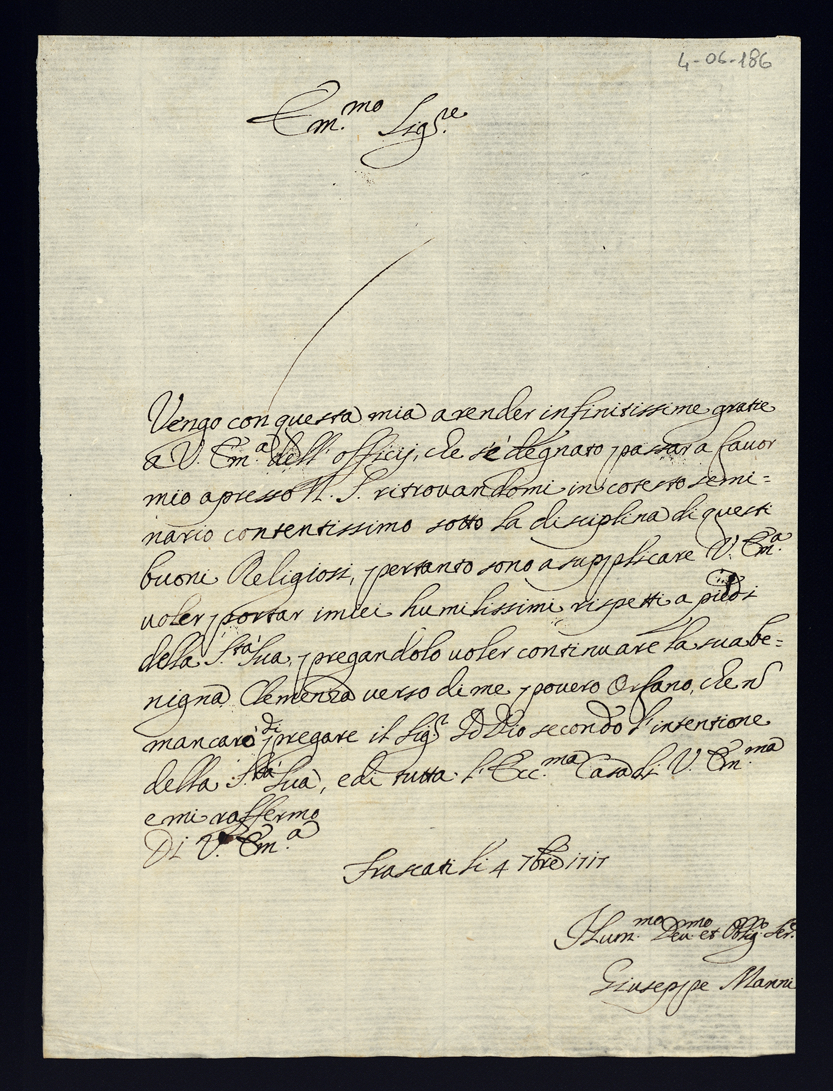 4-06-186
Em.mo Sig.re
Vengo con questa mia a render infinitissime gratie
a V. Em.a dell' officij, che s'è degnato passar a favor
mio apresso N. S. ritrovandomi in cotesto semi=
nario contentissimo sotto la disciplina di questi
buoni Religiosi, pertanto sono a supplicare V. Em.a
voler portar i miei humilissimi rispetti a piedi
della S.tà Sua, pregandolo voler continuare la sua be=
nigna Clemenza verso di me povero Orfano, che nō
mancarò di pregare il Sig.r Id Dio secondo l'intentione
della S.tà Sua, e di tutta l'Ecc.ma Casa di V. Em.ma
e mi raffermo
Di V. Em.a
Frascati li 4 7bre 1717
Hum.mo Dev.mo et Oblig.mo Ser.e
Giuseppe Manni